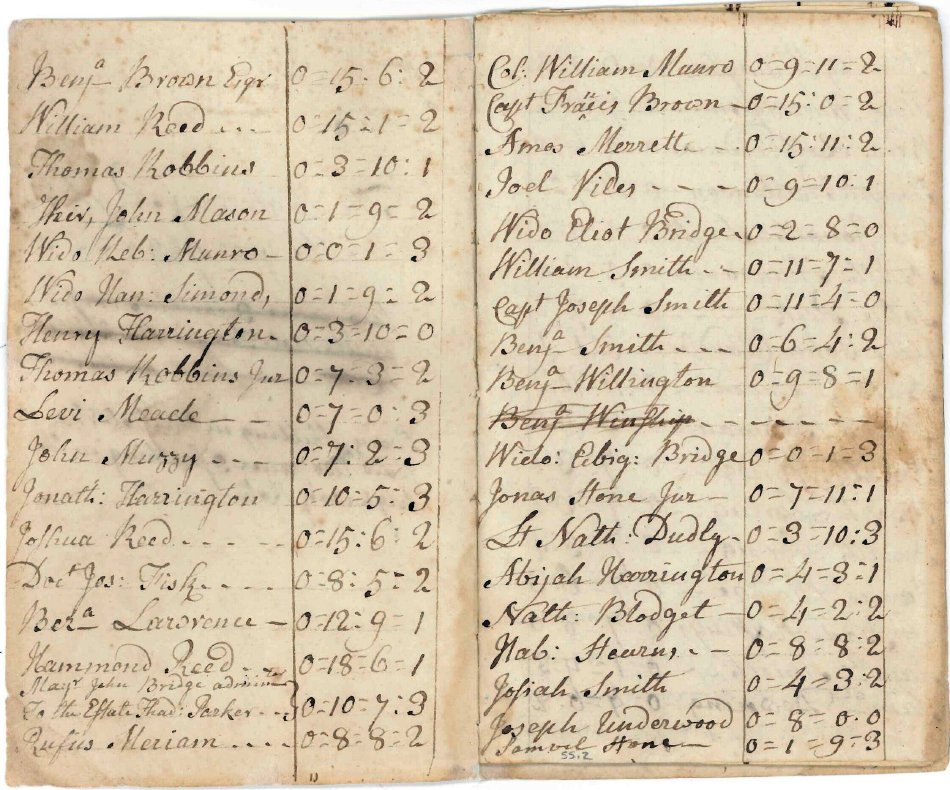 Benja Brown Esqr 0=15:6:2
William Reed - - - 0=15=1=2
Thomas Robbins 0=3=10:1
Heir, John Mason 0=1=9=2
Wido Keb: Munro - 0=0=1=3
Wido Han: Simond, 0=1=9=2
Henry Harrington - 0=3=10=0
Thomas Robbins Jur 0=7:3=2
Levi Meade - - 0=7=0:3
John Muzzy - - - 0=7:2=3
Jonath: Harrington 0=10=5:3
Joshua Reed - - - - - 0=15:6:2
Doct Jos: Fisk - - - - 0=8:5=2
Beza Lawrence - 0=12:9=1
Hammond Reed - - - 0=18=6=1
Mayr John Bridge admin
To the Estate Thad: Parker - - 0=10=7:3
Rufus Meriam - - - - 0=8=8=2
Col: William Munro 0=9=11=2
Capt Francis Brown - 0=15:0=2
Amos Merrett - - - 0=15:11:2
Joel Viles - - - 0=9=10:1
Wido Eliot Bridge - 0=2=8=0
William Smith - - 0=11=7=1
Capt Joseph Smith 0=11=4=0
Benja Smith - - - 0=6=4:2
Benja Willington 0=9=8=1
Benja Winship - - - - - - -
Wido: Abig: Bridge 0=0=1=3
Jonas Stone Jur - 0=7=11:1
Lt Nath: Dudly - 0=3=10:3
Abijah Harrington 0=4=3:1
Nath: Blodget - 0=4=2:2
Hab: Stearns - - 0=8=8:2
Josiah Smith 0=4=3:2
Joseph Underwood 0=8=0.0
Samuel Stone - 0=1=9=3
55.2